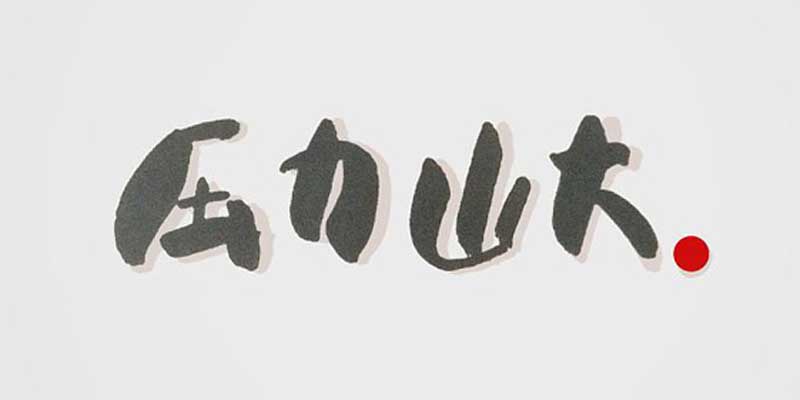 压力山大